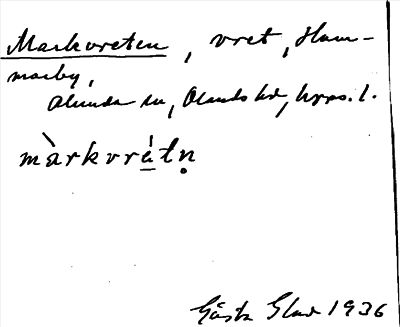 Markvreten, vret, Ham-
marby,
Alunda sn, Olands hd, Upps. l.
màrkvrátṇ
Gösta Glad 1936